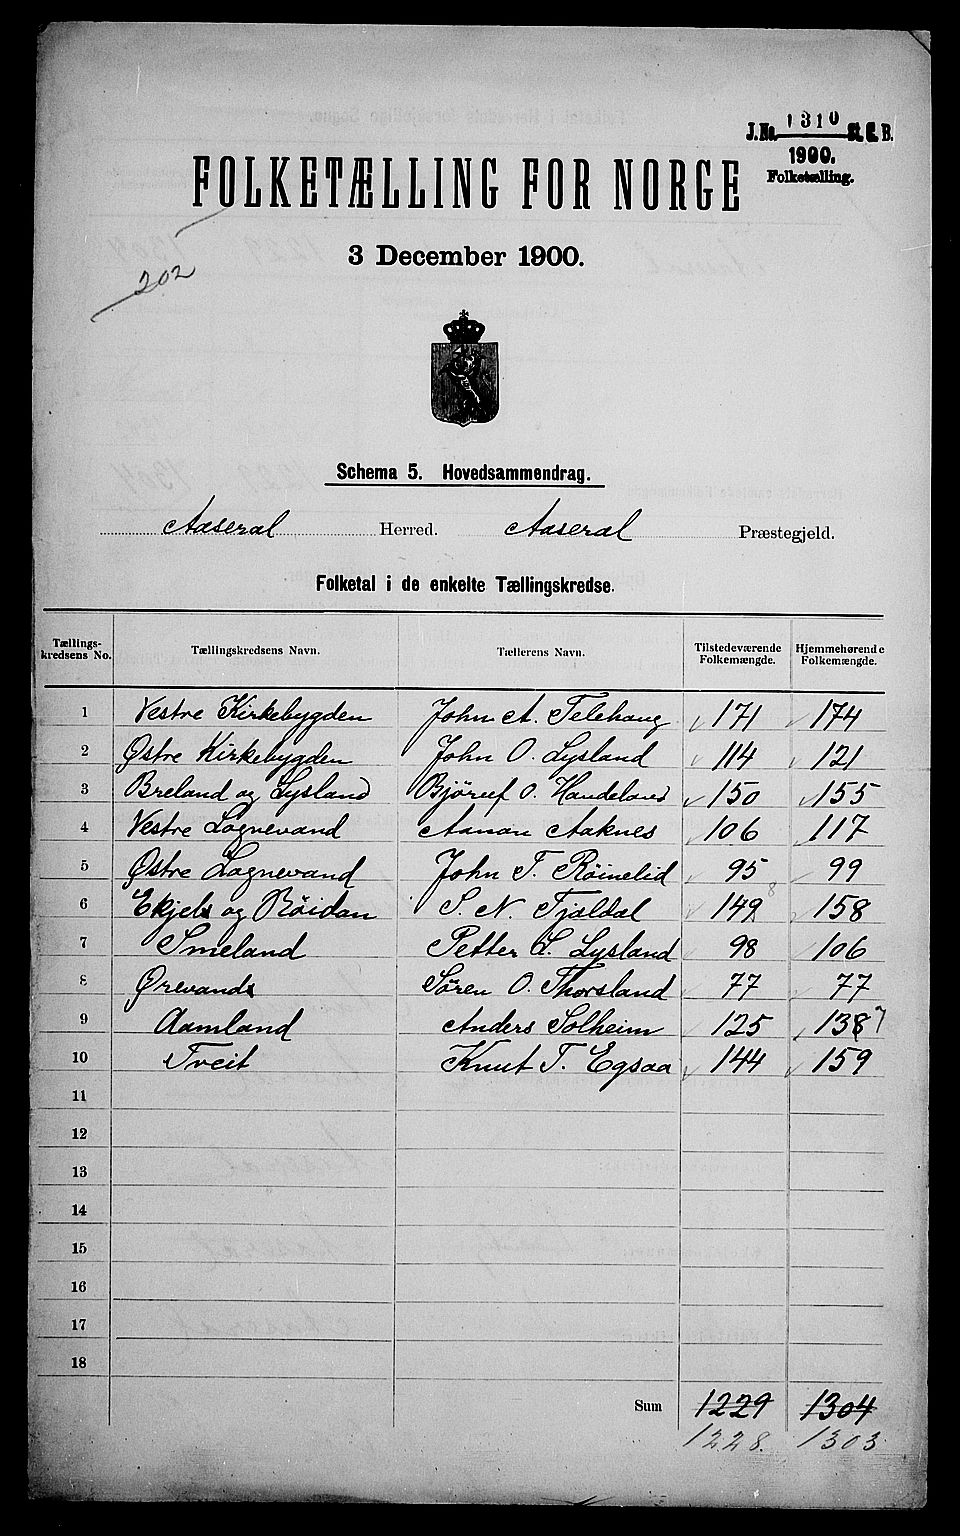 J.No. 1310 St. C. B.
1900.
Folketælling.
FOLKETÆLLING FOR NORGE
3 December 1900.
202
Schema 5. Hovedsammendrag.
Aaseral Herred. Aaseral Præstegjeld.
Folketal i de enkelte Tællingskredse.
Tællings-kredsens No. Tællingskredsens Navn. Tællerens Navn. Tilstedeværende Folkemængde. Hjemmehørende Folkemængde.
1 Vestre Kirkebygden John A. Telehaug 171 174
2 Østre Kirkebygden John O. Lysland 114 121
3 Breland og Lysland O. Handeland 150 155
4 Vestre Lognevand Aanon Aaknes 106 117
5 Østre Lognevand John T. Røinelid 95 99
6 Ekjels og Røidan S. N. Fjaldal 149 8 158
7 Smeland Petter L. Lysland 98 106
8 Ørevand Søren O. Thorsland 77 77
9 Aamland Anders Solheim 125 138 7
10 Tveit Knut T. Egsaa 144 159
11
12
13
14
15
16
17
18
Sum 1229 1304
1228. 1303